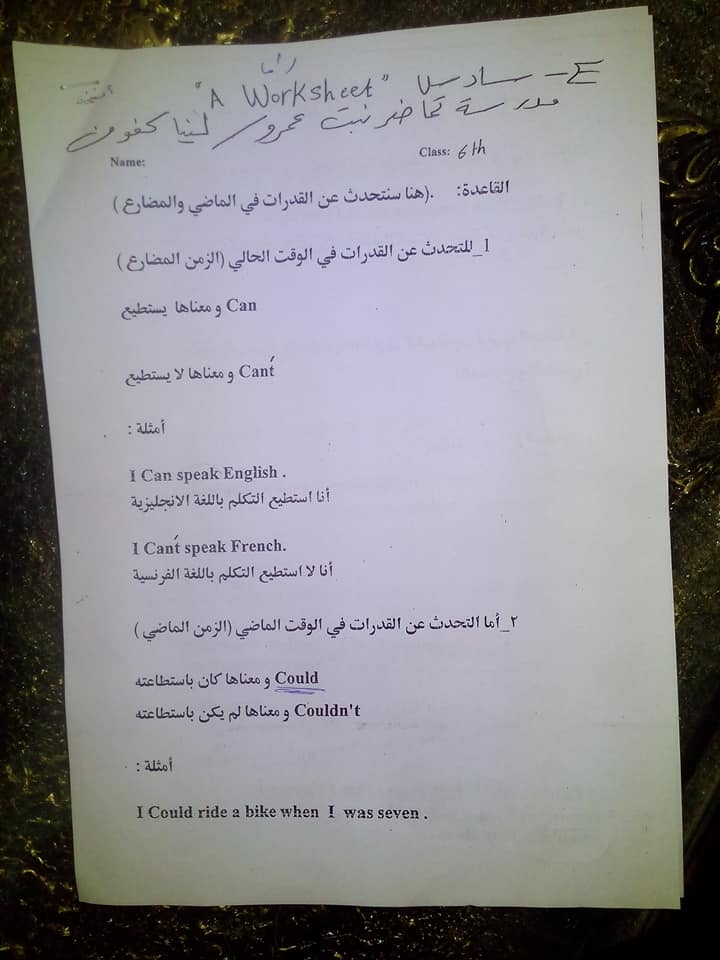 راما
E - سادس "A Worksheet"
مدرسة تماضر بنت عمرو
Name:
Class: 6th
القاعدة: .(هنا سنتحدث عن القدرات في الماضي والمضارع )
1_للتحدث عن القدرات في الوقت الحالي (الزمن المضارع )
Can و معناها يستطيع
Can't و معناها لا يستطيع
أمثلة :
I Can speak English .
أنا استطيع التكلم باللغة الانجليزية
I Can't speak French.
أنا لا استطيع التكلم باللغة الفرنسية
٢_أما التحدث عن القدرات في الوقت الماضي (الزمن الماضي )
Could و معناها كان باستطاعته
Couldn't و معناها لم يكن باستطاعته
أمثلة :
I Could ride a bike when I was seven .